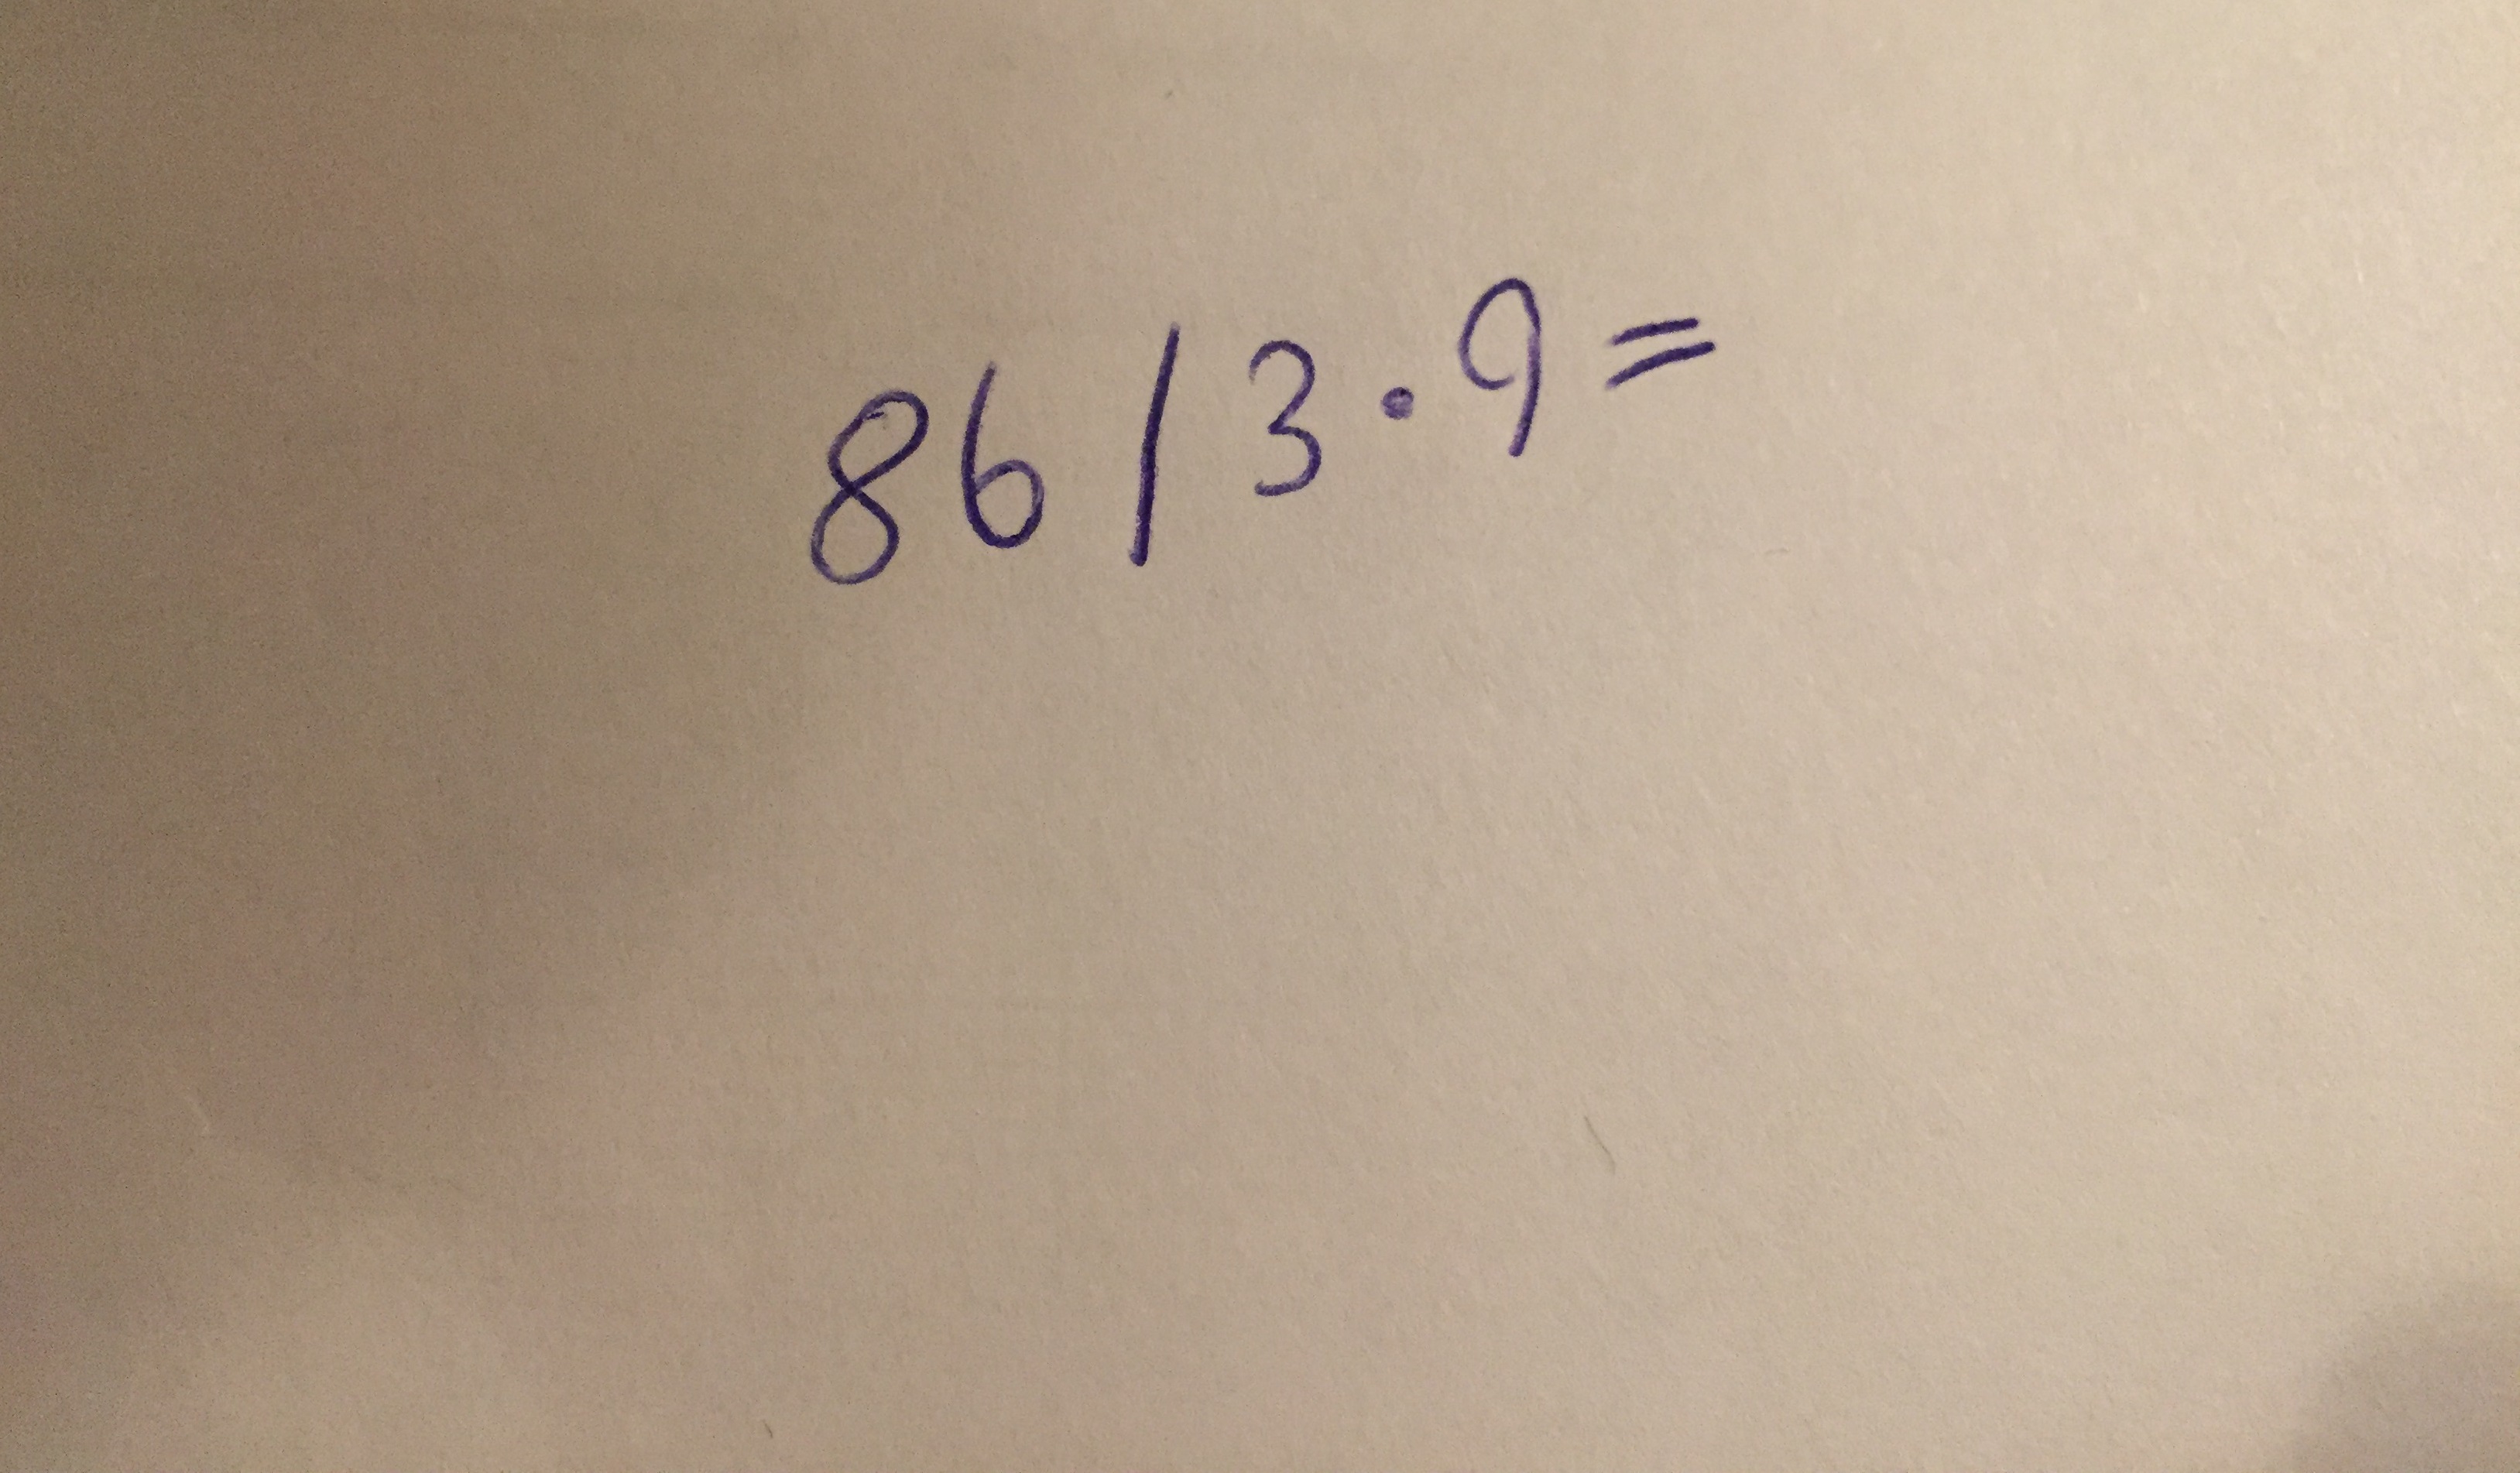 86/3·9=